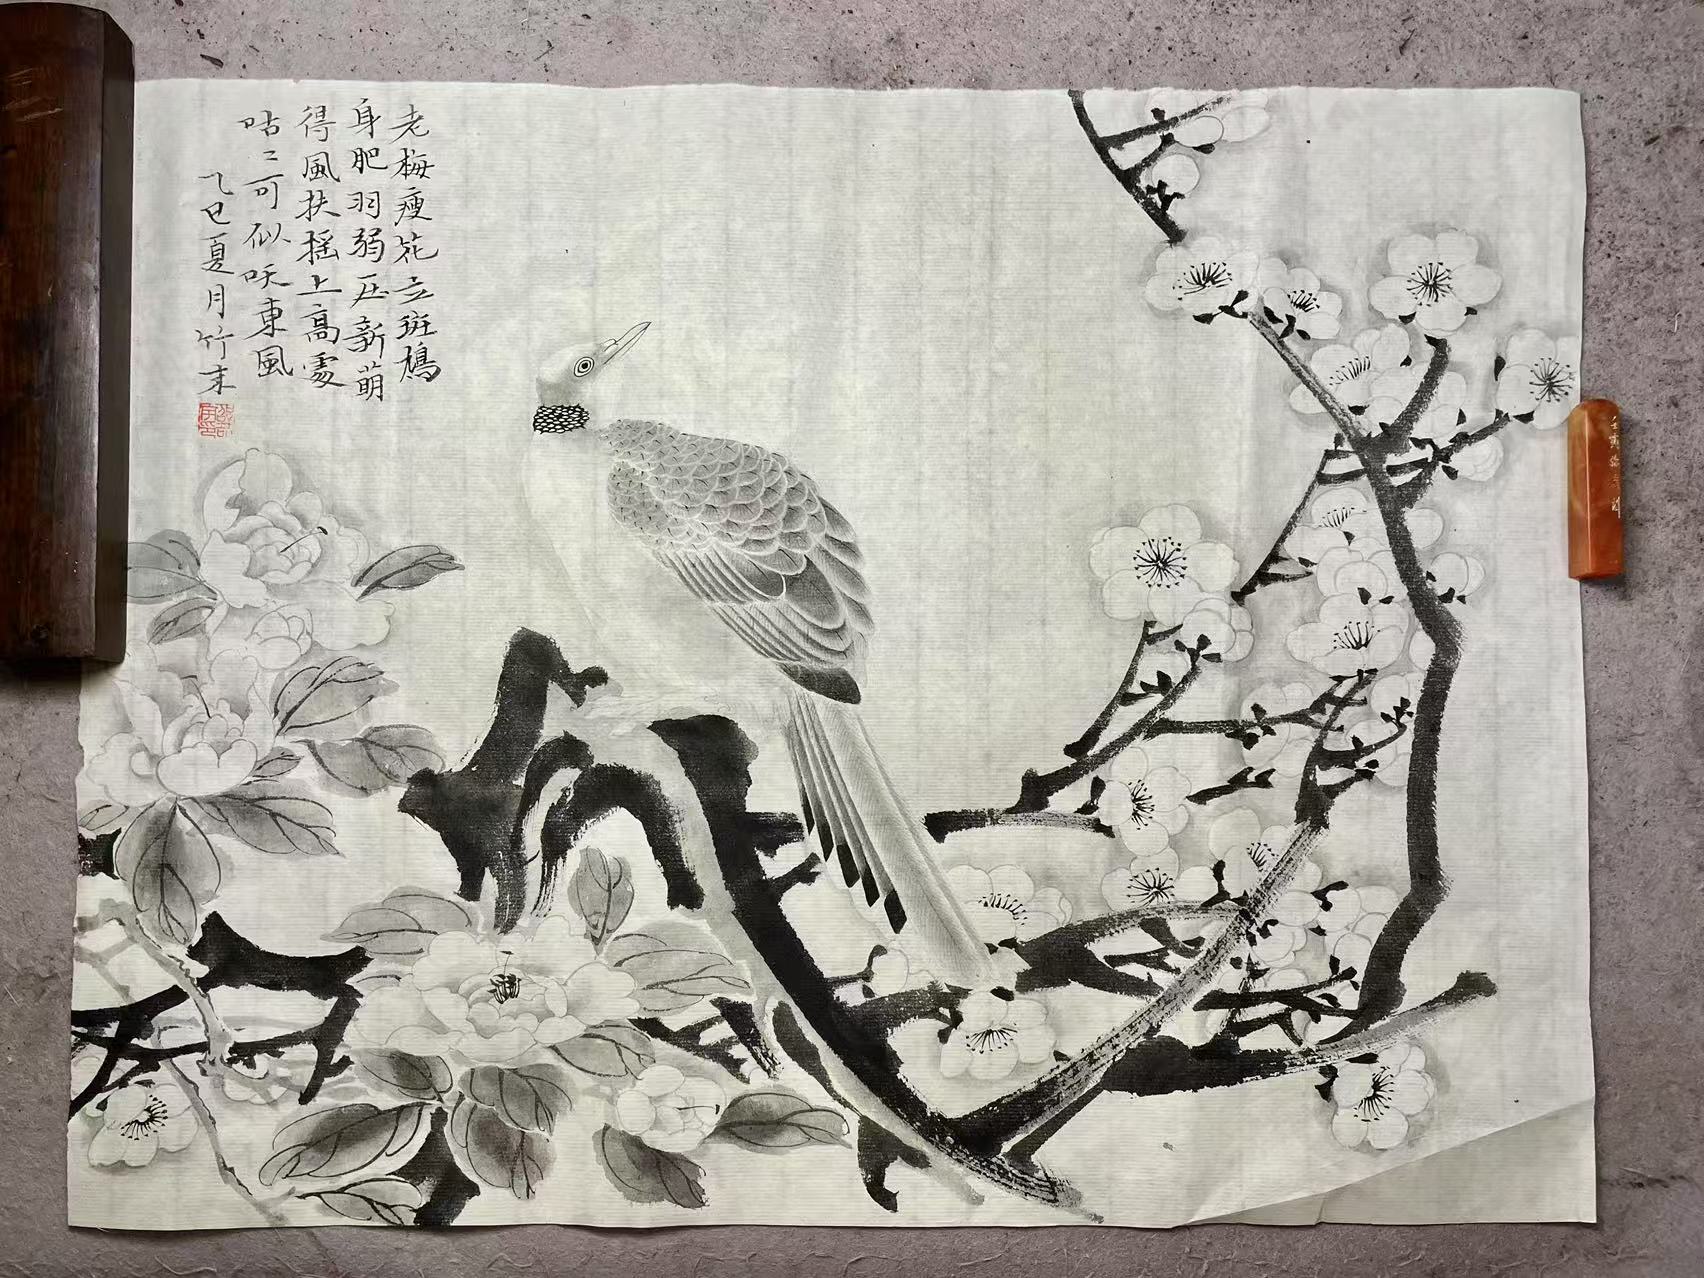 老梅瘦花立斑鳩
身肥羽弱压新萌
得風扶摇上高處
咕〻可似呋東風
乙巳夏月竹末